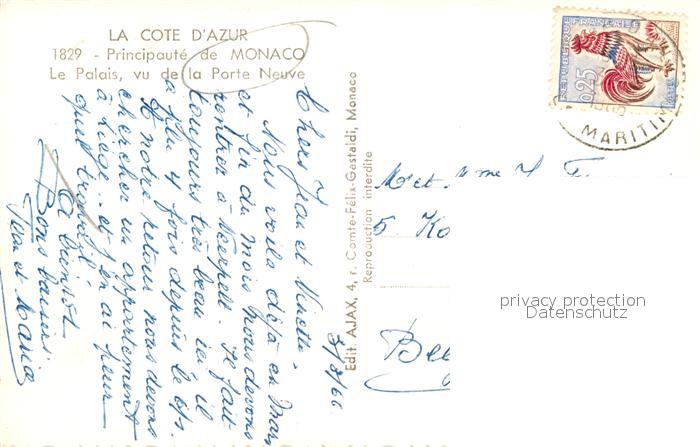 LA COTE D'AZUR
1829 - Principauté de MONACO
Le Palais, vu de la Porte Neuve
3/3/66
Chers Jean et Ninette
Nous voilà déjà en Mars
et fin du mois nous devons
rentrer à Neerpelt. Il fait
toujours très beau ici il
a plu 4 fois depuis le
A notre retour nous devons
chercher un appartement
à Liège - et j'en ai peur
quel travail!
A bientôt
Bons baisers
Jean et Maria
Edit. AJAX, 4, r. Comte-Félix-Gastaldi, Monaco
Reproduction interdite
REPUBLIQUE FRANÇAISE
0,25
MARITIM
M et Mme
5.
privacy protection
Datenschutz